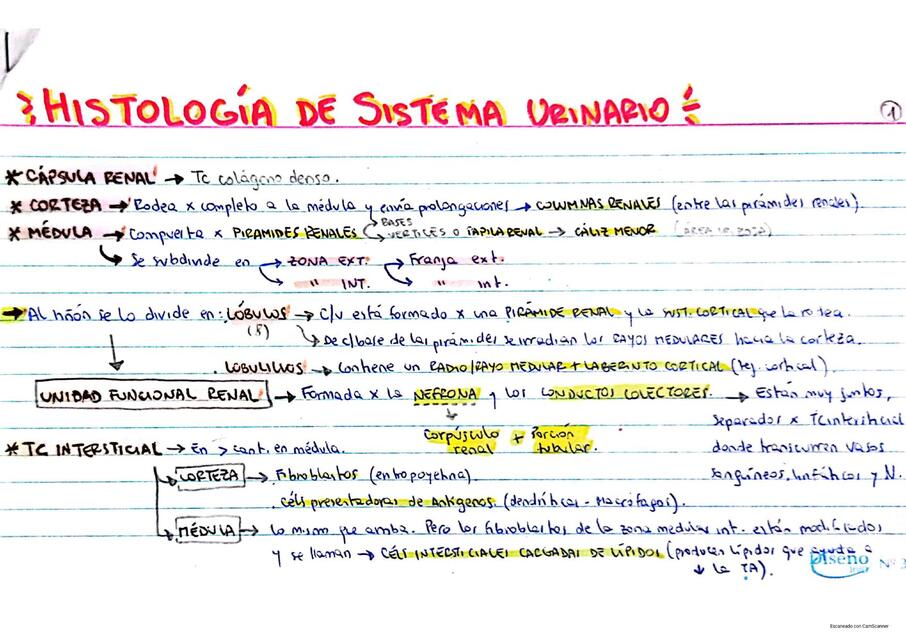 HISTOLOGÍA DE SISTEMA URINARIO
1
* CÁPSULA RENAL → Tc colágeno denso.
* CORTEZA → Rodea x completo a la médula y envía prolongaciones → COLUMNAS RENALES (entre las pirámides renales).
* MÉDULA → Compuesta x PIRÁMIDES RENALES BASES
VÉRTICES O PAPILA RENAL → CÁLIZ MENOR
Se subdivide en → ZONA EXT. → Franja ext.
" INT. " int.
→ Al riñón se lo divide en: LÓBULOS → C/u está formado x una PIRÁMIDE RENAL y la SUST. CORTICAL que la rodea.
(8) De c/base de las pirámides se irradian los RAYOS MEDULARES hacia la corteza.
. LOBULILLOS → Contiene un RADIO/RAYO MEDULAR + LABERINTO CORTICAL (tej. cortical).
UNIDAD FUNCIONAL RENAL → Formada x la NEFRONA y los CONDUCTOS COLECTORES. → Están muy juntos,
separados x TC intersticial
corpúsculo renal + Porción tubular.
donde transcurren vasos
sanguíneos, linfáticos y N.
* TC INTERSTICIAL → En > cant. en médula.
CORTEZA → Fibroblastos (entropoyetina).
. Céls presentadoras de Antígenos (dendríticas - Macrófagos).
MÉDULA → Lo mismo que arriba. Pero los fibroblastos de la zona medular int. están modificados
y se llaman → CÉLS INTERSTICIALES CARGADAS DE LÍPIDOS (producen lípidos que ayuda a
↓ la TA).
Diseño
N° 3
Escaneado con CamScanner